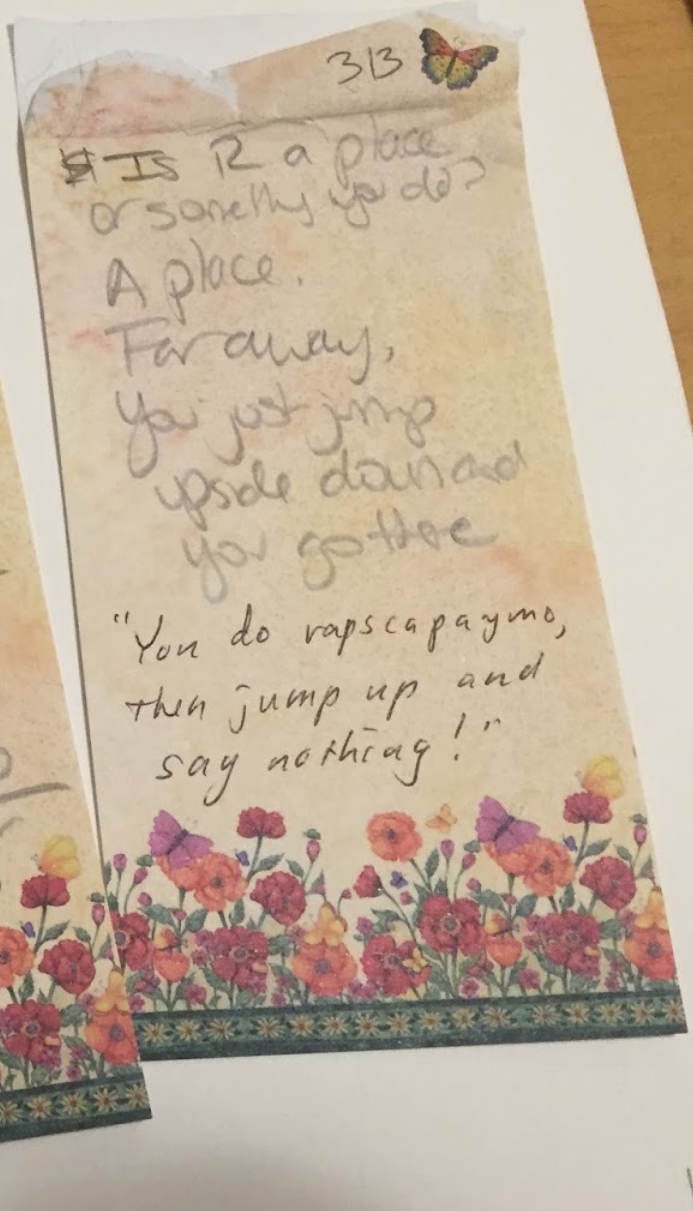 313
Is R a place
or somethg you do?
A place.
Far away,
You just jump
upside down and
you go there
"You do rapscapaymo,
then jump up and
say nothing!"